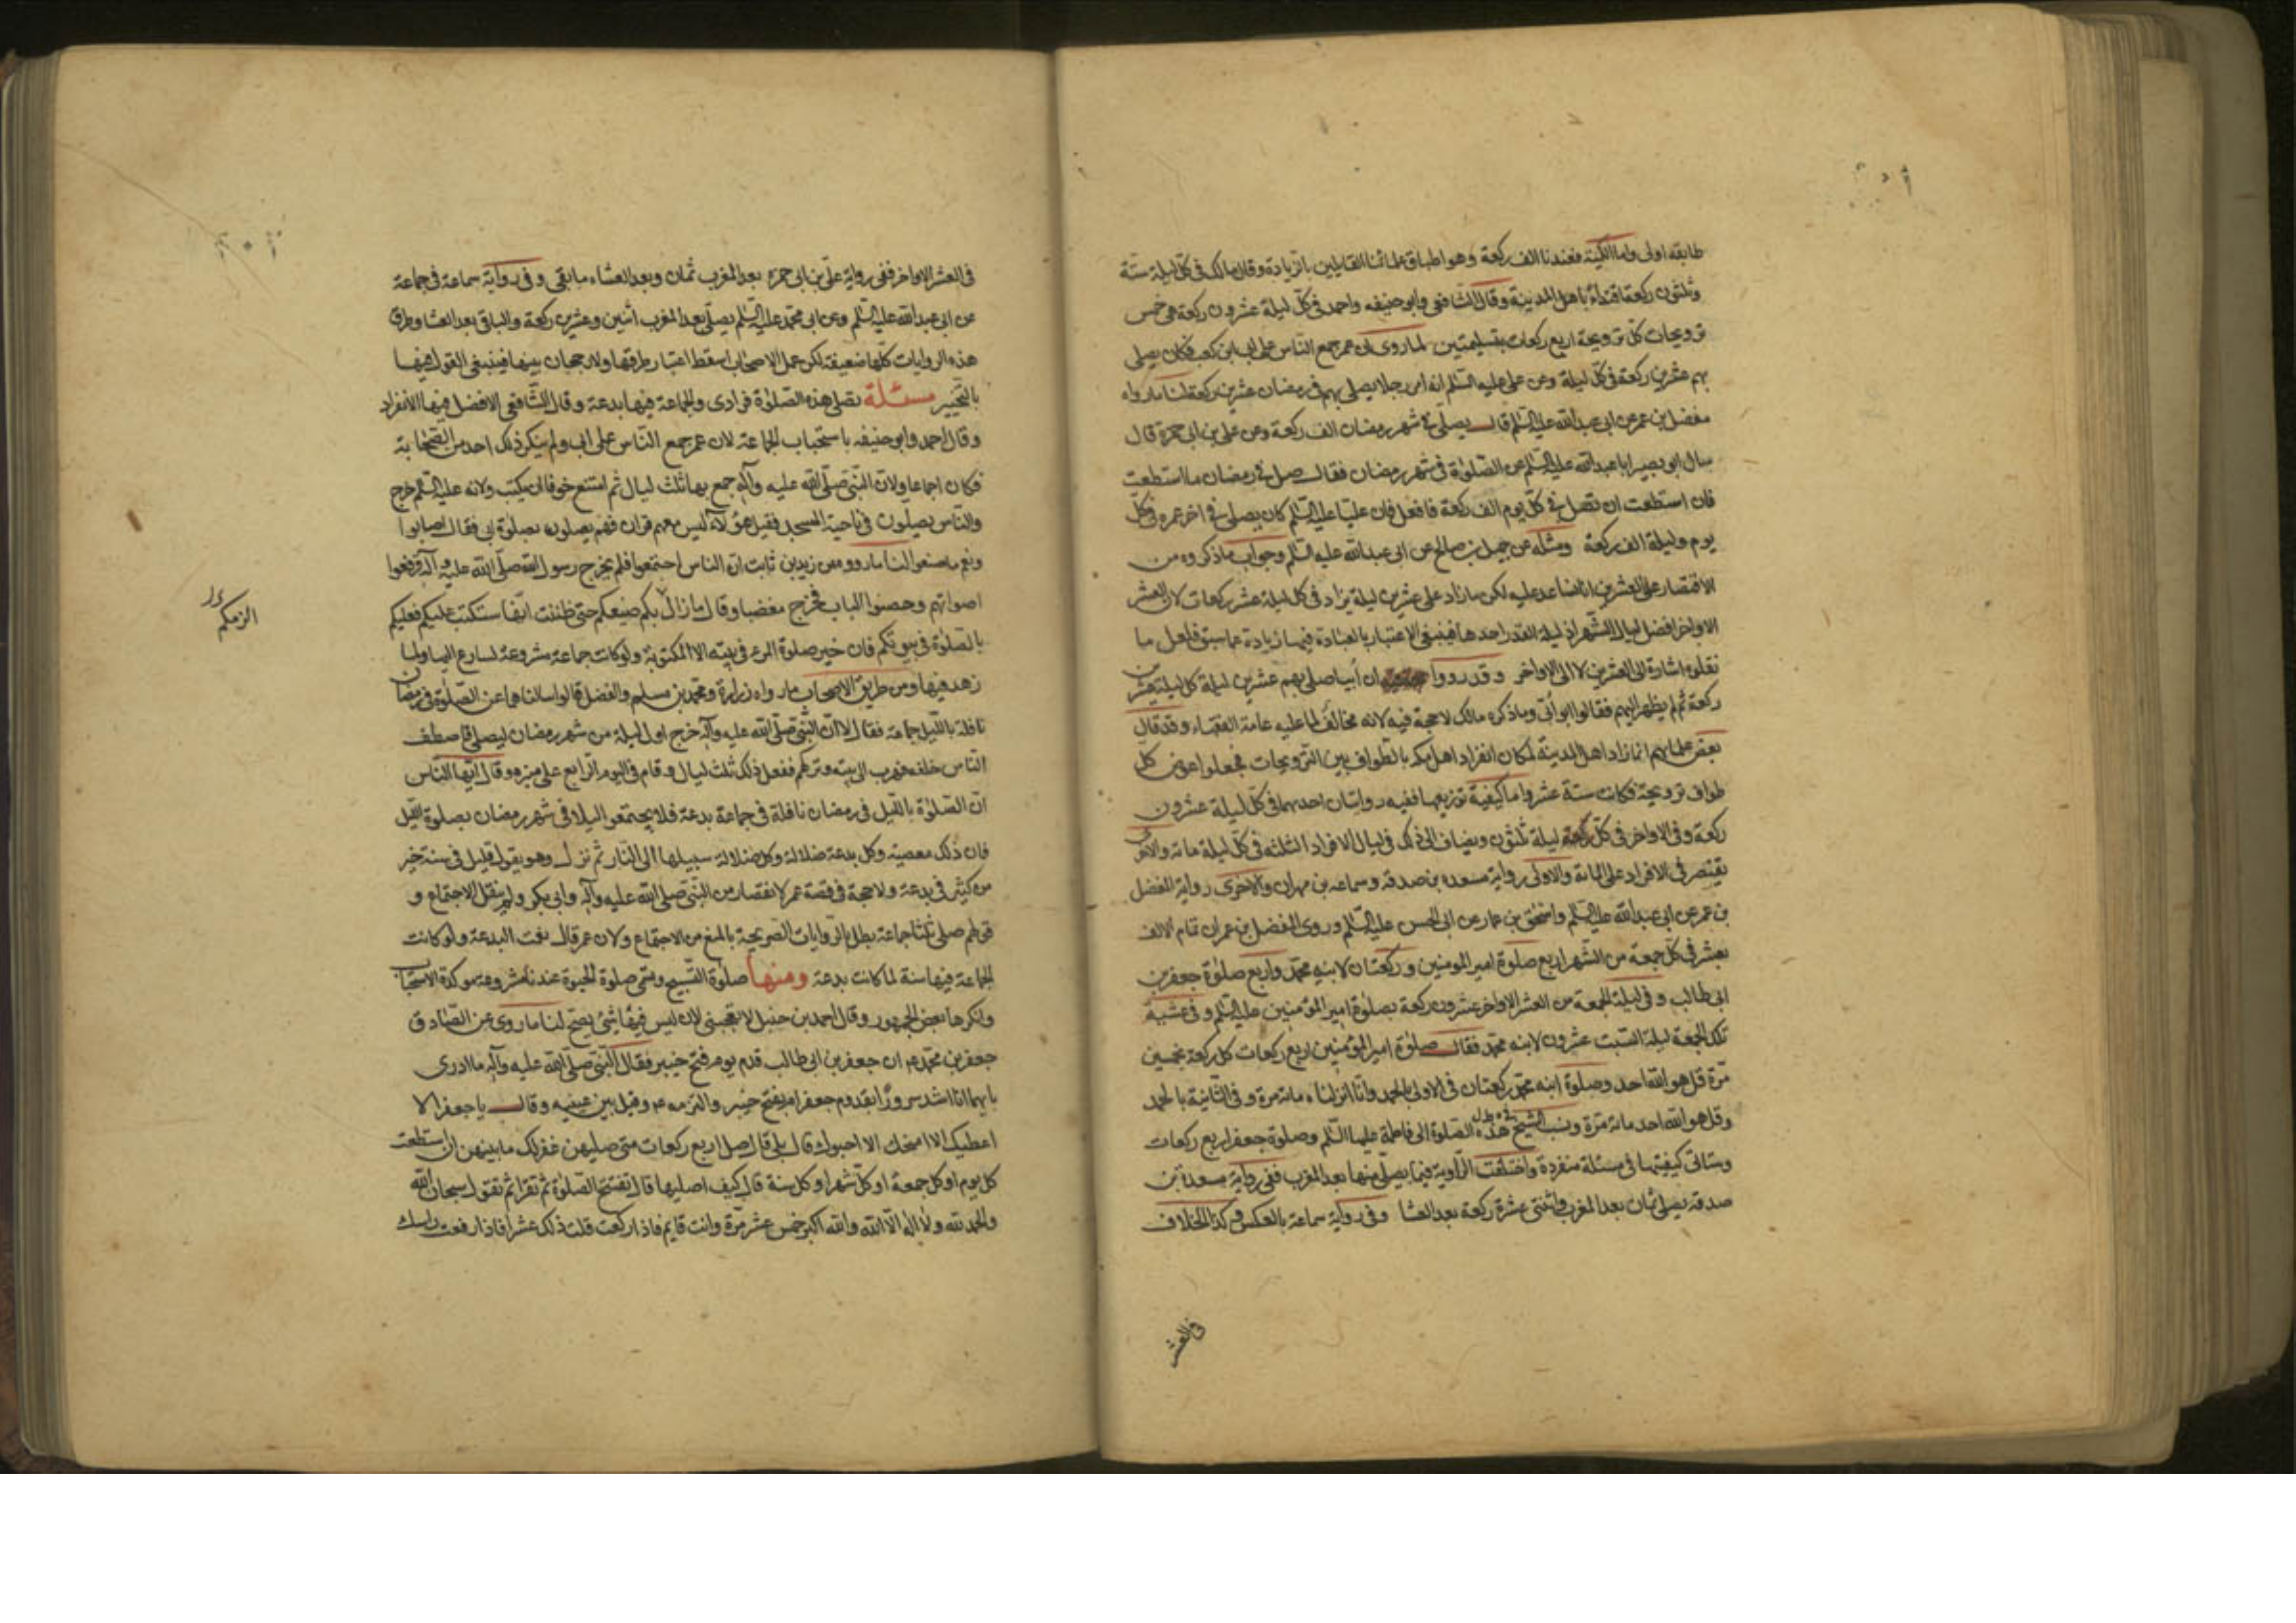 طابقه اولى واما الكمية فعندنا الف ركعة وهو اطباق علمائنا القايلين بالزيادة وقال مالك فى كل ليلة ستة
وثلثون ركعة اقتداء باهل المدينة وقال الشافعى وابو حنيفه واحمد فى كل ليلة عشرون ركعة هى خمس
ترويحات كل ترويحة اربع ركعات بتسليمتين لما روى ان عمر جمع الناس على ابى بن كعب فكان يصلى
بهم عشرين ركعة فى كل ليلة وعن على عليه السلم انه امر رجلا يصلى بهم فى رمضان عشرين ركعة لنا ما رواه
مفضل بن عمر عن ابى عبد الله عليه السلم قال يصلى فى شهر رمضان الف ركعة وعن على بن ابى حمزة قال
سال ابو بصير ابا عبد الله عليه السلم عن الصلوة فى شهر رمضان فقال صل فى رمضان ما استطعت
فان استطعت ان تصل فى كل يوم الف ركعة فافعل فان عليا عليه السلم كان يصلى فى اخر عمره فى كل
يوم وليلة الف ركعة ومثله عن جميل بن صالح عن ابى عبد الله عليه السلم وجواب ما ذكروه من
الاقتصار على العشرين انا نساعد عليه لكن ما زاد على عشرين ليلة يزاد فى كل ليلة عشر ركعات لان العشر
الاواخر افضل ليال الشهر اذ ليلة القدر احدها فينبغى الاعتبار بالعبادة فيها زيادة عما سبق فلعل ما
نقلوه اشارة الى العشرين لا الى الاواخر وقد رووا ان أبيا صلى بهم عشرين ليلة كل ليلة عشرين
ركعة ثم لم يظهر اليهم فقالوا ابو أبى وما ذكره مالك لا حجة فيه لانه مخالف لما عليه عامة الفقهاء وقد قال
بعض علمائهم انما زاد اهل المدينة لمكان انفراد اهل مكه بالطواف بين الترويحات فجعلوا عوض كل
طواف ترويحة فكانت ستة عشر واما كيفية توزيعها ففيه روايتان احديهما فى كل ليلة عشرون
ركعة وفى الاواخر فى كل ليلة ثلثون ويضاف الى ذلك فى ليال الافراد الثلثه فى كل ليلة مائة والاخرى
يقتصر فى الافراد على المائة والاولى رواية مسعده بن صدقه وسماعه بن مهران والاخرى رواية المفضل
بن عمر عن ابى عبد الله عليه السلم واسحق بن عمار عن ابى الحسن عليه السلم وروى المفضل بن عمر ان تمام الالف
بعشر فى كل جمعة من الشهر اربع صلوة امير المومنين وركعتان لابنه محمد واربع صلوة جعفر بن
ابى طالب وفى ليلة الجمعة من العشر الاواخر عشرون ركعة بصلوة امير المؤمنين عليه السلم وفى عشية
تلك الجمعة ليلة السبت عشرون لابنه محمد فقال صلوة امير المؤمنين اربع ركعات كل ركعة بخمسين
مرة قل هو الله احد وصلوة ابنه محمد ركعتان فى الاولى بالحمد وانا انزلناه مائة مرة وفى الثانية بالحمد
وقل هو الله احد مائة مرة ونسب الشيخ هذه الصلوة الى فاطمة عليها السلم وصلوة جعفر اربع ركعات
وستاتى كيفيتها فى مسئلة منفردة واختلفت الراوية فيما يصلى منها بعد المغرب ففى رواية مسعدة بن
صدقه يصلى ثمان بعد المغرب واثنتى عشرة ركعة بعد العشا وفى رواية سماعة بالعكس وكذا الخلاف
فى العشر
فى العشر الاواخر ففى رواية على بن ابى حمزه بعد المغرب ثمان وبعد العشاء ما بقى وفى رواية سماعة فى جماعة
عن ابى عبد الله عليه السلم وعن ابى محمد عليه السلم يصلى بعد المغرب اثنين وعشرين ركعة والباقى بعد العشا وطرق
هذه الروايات كلها ضعيفة لكن عمل الاصحاب اسقط اعتبار طرقها ولا رجحان بينها فينبغى القول فيها
بالتخيير مسئلة تصلى هذه الصلوة فرادى والجماعة فيها بدعة وقال الشافعى الافضل فيها الانفراد
وقال احمد وابو حنيفه باستحباب الجماعة لان عمر جمع الناس على ابى ولم ينكر ذلك احد من الصحابة
فكان اجماعا ولان النبى صلى الله عليه وآله جمع بها ثلث ليال ثم امتنع خوفا ان يكتب ولانه عليه السلم خرج
والناس يصلون فى ناحية المسجد فقيل هؤلاء ليس معهم قران فهم يصلون بصلوة ابى فقال اصابوا
ونعم ما صنعوا لنا ما رووه عن زيد بن ثابت ان الناس اجتمعوا فلم يخرج رسول الله صلى الله عليه وآله فرفعوا
اصواتهم وحصبوا الباب فخرج مغضبا وقال ما زال بكم صنيعكم حتى ظننت انها ستكتب عليكم فعليكم
بالصلوة فى بيوتكم فان خير صلوة المرء فى بيته الا المكتوبة ولو كانت جماعة مشروعة لسارع اليها ولما
زهد فيها ومن طريق الاصحاب ما رواه زرارة ومحمد بن مسلم والفضل قالوا سالناهما عن الصلوة فى رمضان
نافلة بالليل جماعة فقال لا ان النبى صلى الله عليه وآله خرج اول ليلة من شهر رمضان ليصلى فاصطف
الناس خلفه فهرب الى بيته وتركهم ففعل ذلك ثلث ليال وقام فى اليوم الرابع على منبره وقال ايها الناس
ان الصلوة بالليل فى رمضان نافلة فى جماعة بدعة فلا يجتمعوا ليلا فى شهر رمضان بصلوة الليل
فان ذلك معصية وكل بدعة ضلالة وكل ضلالة سبيلها الى النار ثم نزل وهو يقول قليل فى سنة خير
من كثير فى بدعة ولا حجة فى قصة عمر لانفصار من النبى صلى الله عليه وآله وابى بكر ولم ينقل الاجتماع و
قولهم صلى ثلثا جماعة بطل بالروايات الصريحة بالمنع من الاجتماع ولان عمر قال نعمت البدعة ولو كانت
الجماعة فيها سنة لما كانت بدعة ومنها صلوة التسبيح وتسمى صلوة الحبوة عندنا مشروعة موكدة الاستحباب
وانكرها بعض الجمهور وقال احمد بن حنبل لا تعجبنى لان ليس فيها شئ يصح لنا ما روى عن الصادق
جعفر بن محمد ان جعفر بن ابى طالب قدم يوم فتح خيبر فقال النبى صلى الله عليه وآله ما ادرى
بايهما انا اشد سرورا بقدوم جعفر ام بفتح خيبر والتزمه وقبل بين عينيه وقال يا جعفر الا
اعطيك الا امنحك الا احبوك قال بلى قال صل اربع ركعات متى صليتهن غفر لك ما بينهن ان استطعت
كل يوم او كل جمعة او كل شهر او كل سنة قال كيف اصليها قال تفتتح الصلوة ثم تقرا ثم تقول سبحان الله
والحمد لله ولا اله الا الله والله اكبر خمس عشر مرة وانت قايم فاذا ركعت قلت ذلك عشرا فاذا رفعت راسك